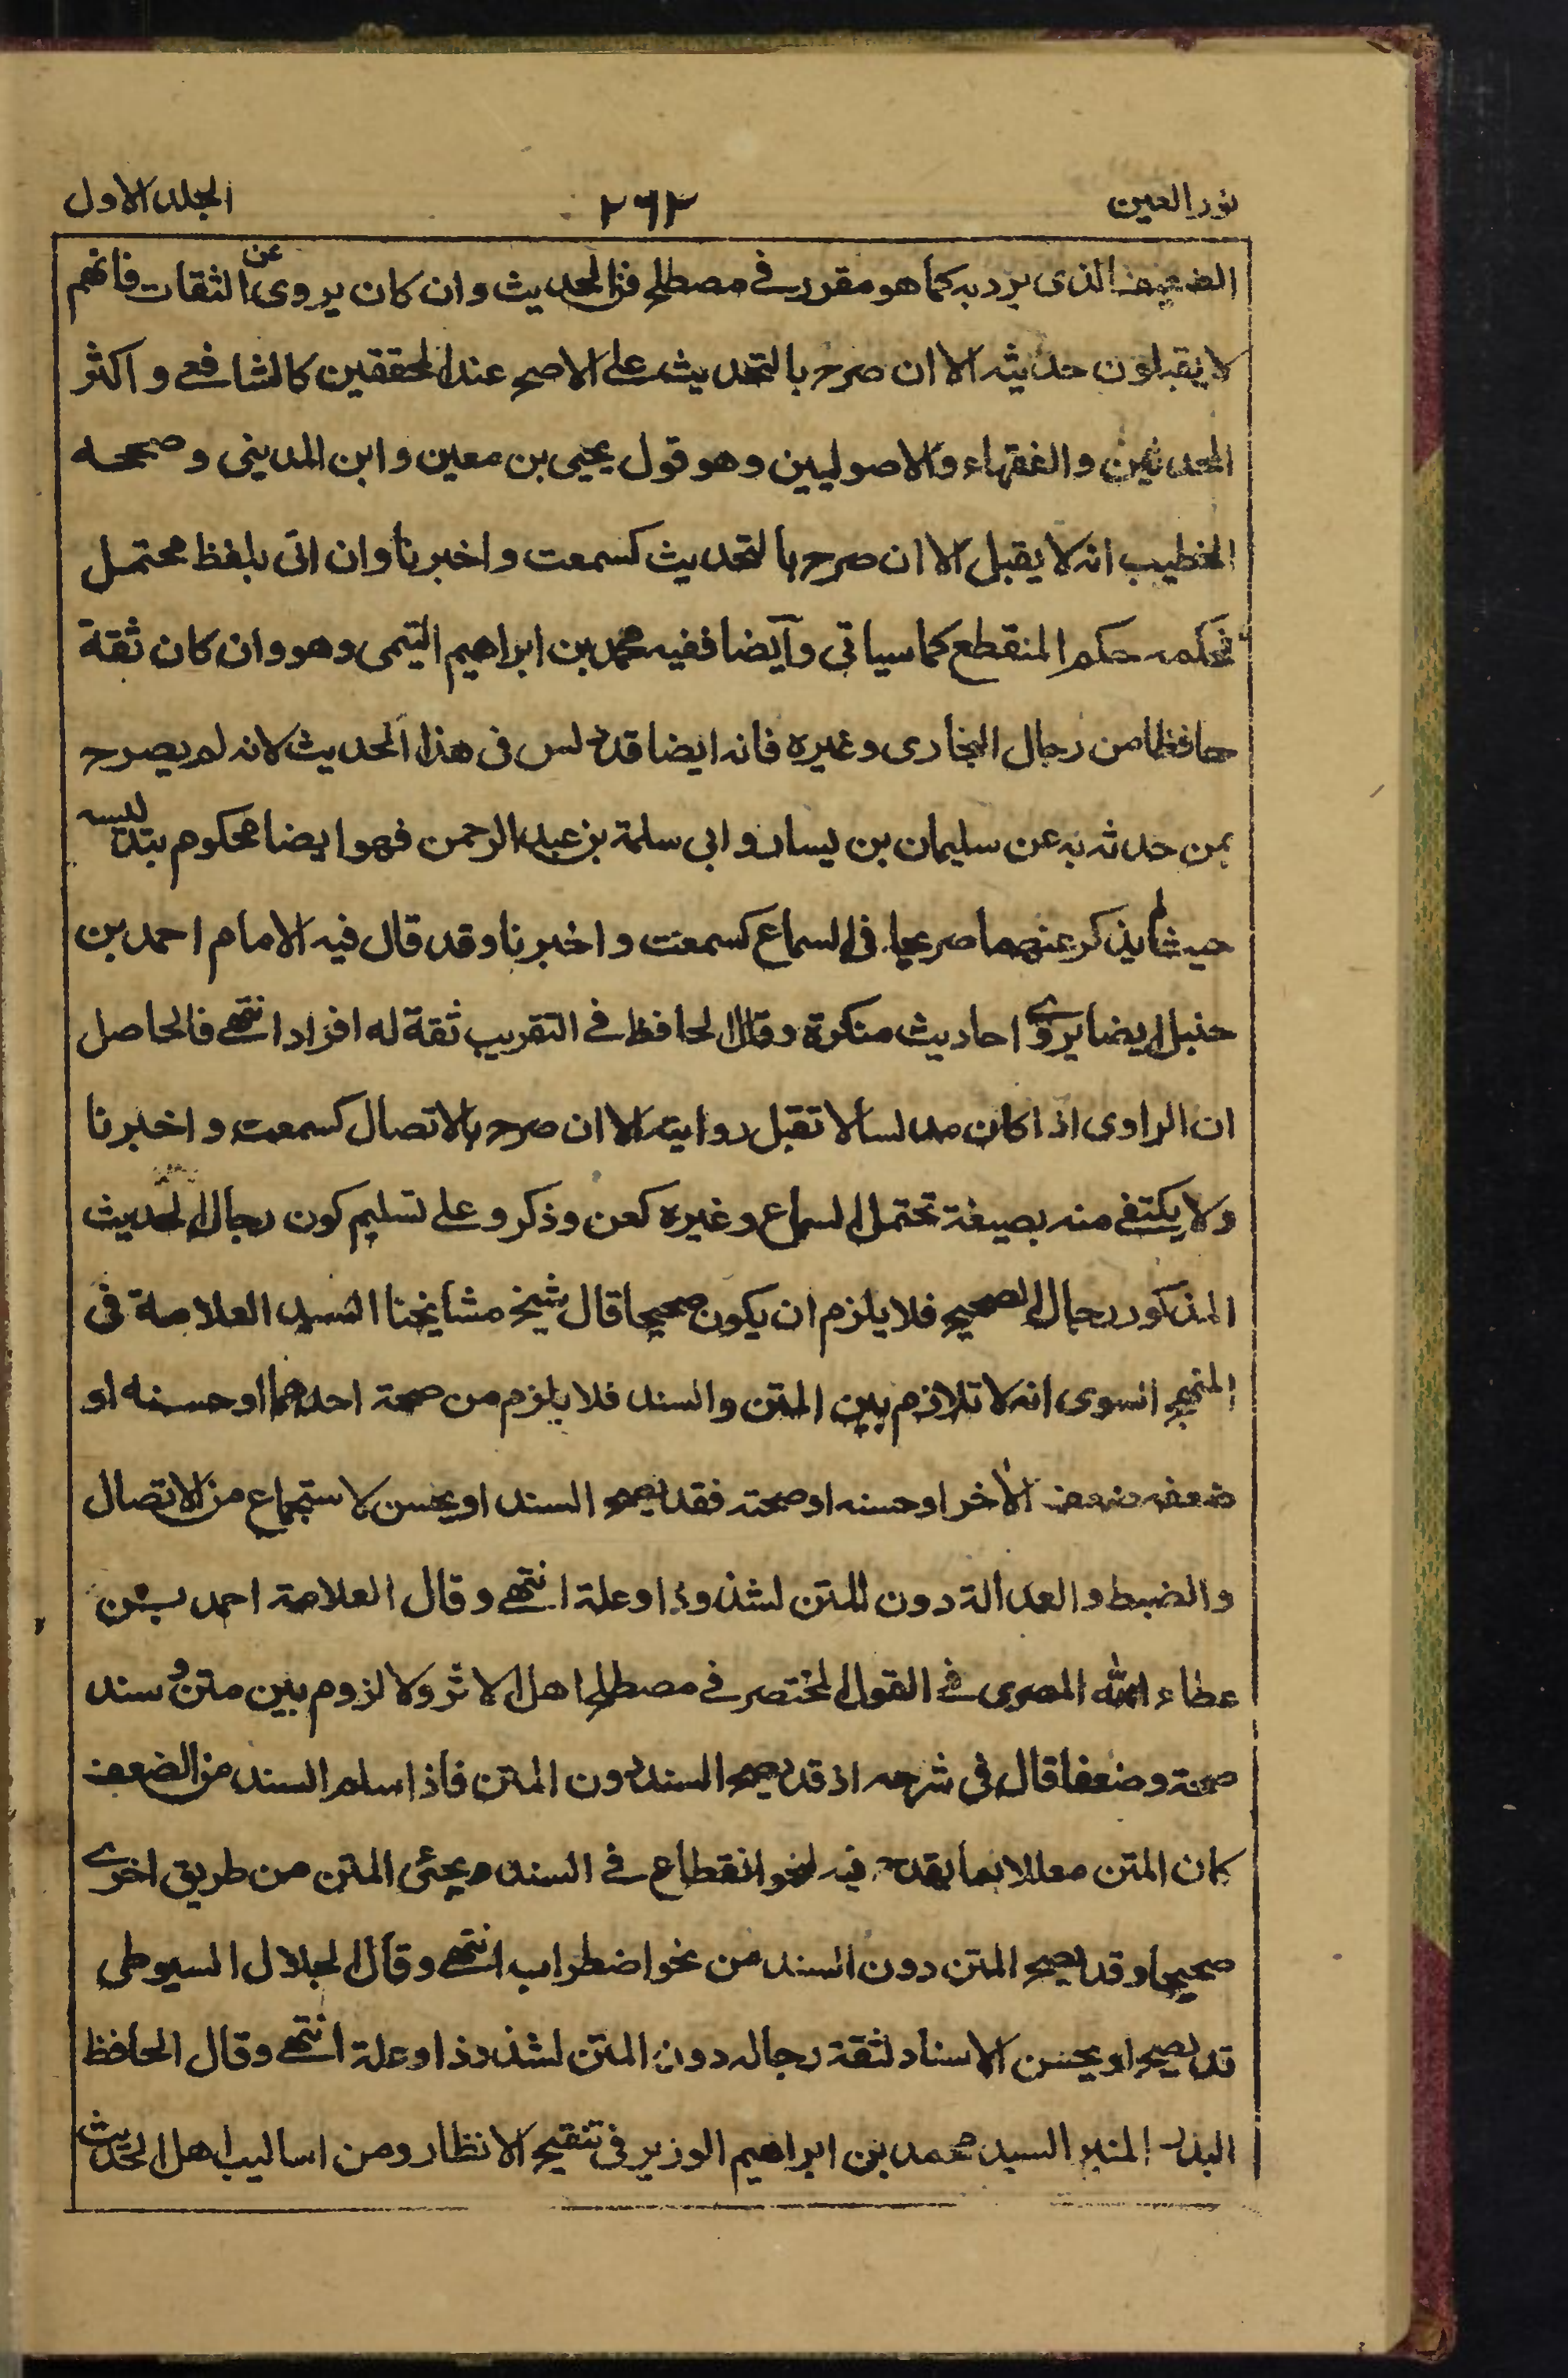 نور العين
٢٦٢
الجلد الاول
الضعيف الذى يرد به كما هو مقرر فى مصطلح فن الحديث وان كان يروى عن الثقات فانهم
لا يقبلون حديثه الا ان صرح بالتحديث على الاصح عند المحققين كالشافعى و اكثر
المحدثين والفقهاء والاصوليين وهو قول يحيى بن معين وابن المدينى وصححه
الخطيب انه لا يقبل الا ان صرح بالتحديث كسمعت واخبرنا وان اتى بلفظ محتمل
فحكمه حكم المنقطع كما سياتى وآيضا ففيه محمد بن ابراهيم التيمى وهو وان كان ثقة
حافظا من رجال البخارى وغيره فانه ايضا قد دلس فى هذا الحديث لانه لم يصرح
بمن حدثه به عن سليمان بن يسار وابى سلمة بن عبد الرحمن فهو ايضا محكوم بتدليسه
حيث لم يذكر عنهما صريحا فى السماع كسمعت واخبرنا وقد قال فيه الامام احمد بن
حنبل ايضا يروى احاديث منكرة وقال الحافظ فى التقريب ثقة له افراد انتهى فالحاصل
ان الراوى اذا كان مدلسا لا تقبل روايته الا ان صرح بالاتصال كسمعت واخبرنا
ولا يكتفى منه بصيغة تحتمل السماع وغيره كعن وذكر وعلى تسليم كون رجال الحديث
المذكور رجال الصحيح فلا يلزم ان يكون صحيحا قال شيخ مشايخنا السيد العلامة فى
المنهج السوى انه لا تلازم بين المتن والسند فلا يلزم من صحة احدهما او حسنه او
ضعفه ضعف الآخر او حسنه او صحته فقد يصح السند او يحسن لاستجماع من الاتصال
والضبط والعدالة دون المتن لشذوذ او علة انتهى وقال العلامة احمد بن
عطاء الله المصرى فى القول المختصر فى مصطلح اهل الاثر ولا لزوم بين متن و سند
صحة وضعفا قال فى شرحه اذ قد يصح السند دون المتن فاذا سلم السند من الضعف
كان المتن معللا بما يقدح فيه لنحو انقطاع فى السند ويجئ المتن من طريق اخرى
صحيحا وقد يصح المتن دون السند من نحو اضطراب انتهى وقال الجلال السيوطى
قد يصح او يحسن الاسناد لثقة رجاله دون المتن لشذوذ او علة انتهى وقال الحافظ
البدر المنير السيد محمد بن ابراهيم الوزير فى تنقيح الانظار ومن اساليب اهل الحديث